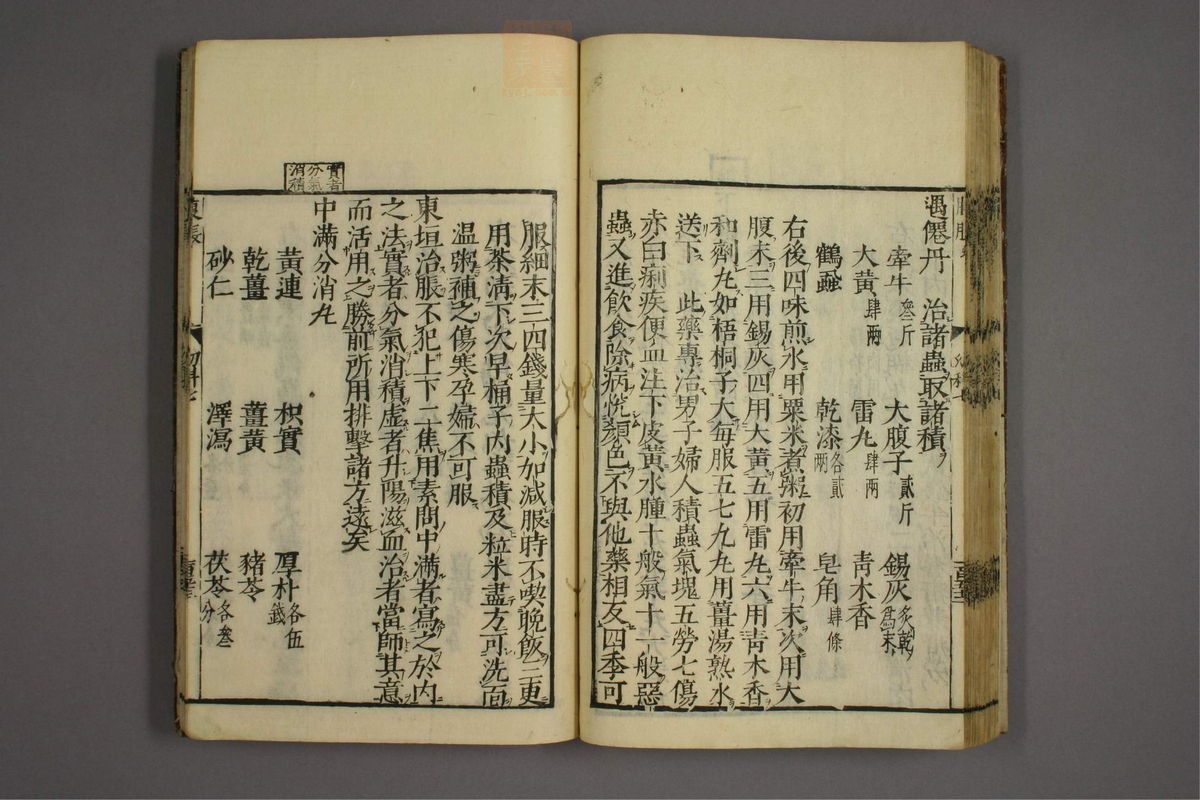 遇僊丹 治諸蟲取諸積
牽牛叁斤 大腹子貳斤 錫灰炙乾爲末
大黄肆兩 雷丸肆兩 青木香
鶴蝨 乾漆各貳兩 皂角肆條
右後四味煎水用粟米煮粥初用牽牛末次用大
腹末三用錫灰四用大黄五用雷丸六用青木香
和劑丸如梧桐子大每服五七九丸用薑湯熟水
送下 此藥專治男子婦人積蟲氣塊五勞七傷
赤白痢疾便血注下皮黄水腫十般氣十一般惡
蟲又進飲食除病悦顔色不與他藥相反四季可
服細末三四錢量大小加減服時不喫晚飯三更
用茶清下次早桶子内蟲積及粒米盡方可洗面
温粥補之傷寒孕婦不可服
實者分氣消積
東垣治脹不犯上下二焦用素問中滿者寫之於内
之法實者分氣消積虚者升陽滋血治者當師其意
而活用之勝前所用排擊諸方遠矣
中滿分消丸
黄連 枳實 厚朴各伍錢
乾薑 薑黄 豬苓
砂仁 澤瀉 茯苓各叁分